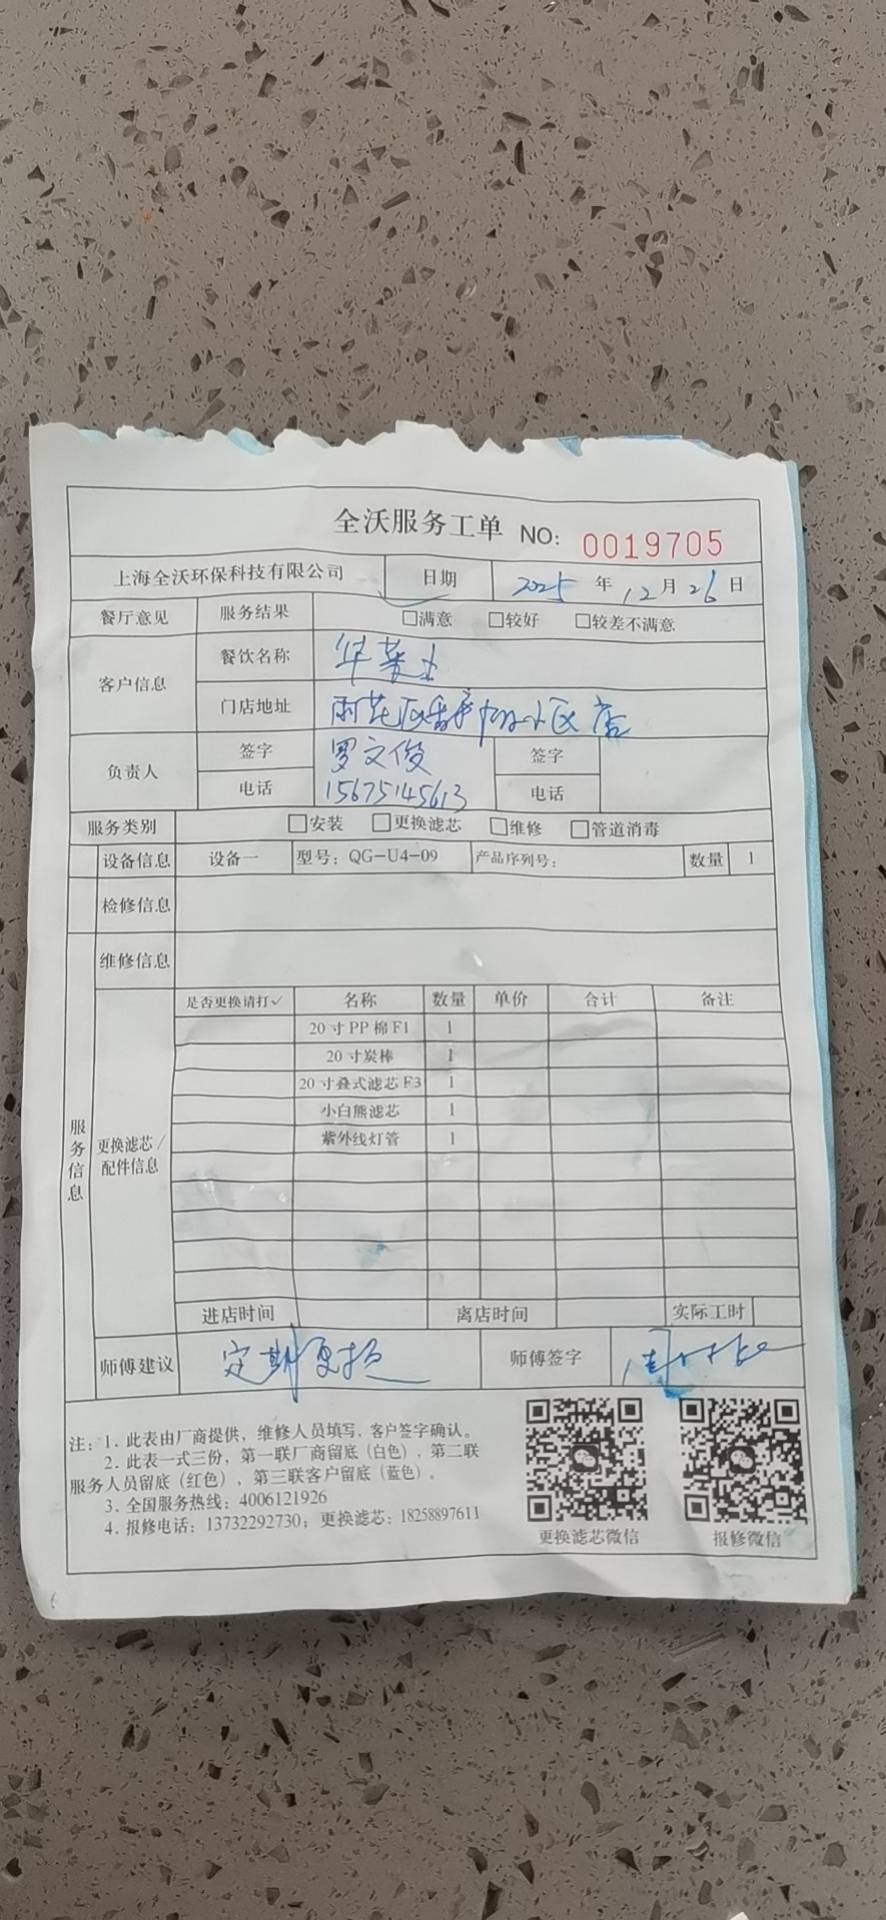 全沃服务工单 NO: 0019705
上海全沃环保科技有限公司 日期 2025 年 12 月 26 日
餐厅意见 服务结果 □满意 □较好 □较差不满意
客户信息 餐饮名称 华莱士
门店地址 雨花区 小区店
负责人 签字 罗文俊 签字
电话 15675145613 电话
服务类别 □安装 □更换滤芯 □维修 □管道消毒
设备信息 设备一 型号: QG-U4-09 产品序列号: 数量 1
检修信息
维修信息
服务信息
更换滤芯/配件信息
是否更换请打✓ 名称 数量 单价 合计 备注
20寸PP棉F1 1
20寸炭棒 1
20寸叠式滤芯F3 1
小白熊滤芯 1
紫外线灯管 1
进店时间 离店时间 实际工时
师傅建议 定期更换 师傅签字
注: 1. 此表由厂商提供, 维修人员填写, 客户签字确认。
2. 此表一式三份, 第一联厂商留底(白色), 第二联
服务人员留底(红色), 第三联客户留底(蓝色)。
3. 全国服务热线: 4006121926
4. 报修电话: 13732292730; 更换滤芯: 18258897611
更换滤芯微信 报修微信